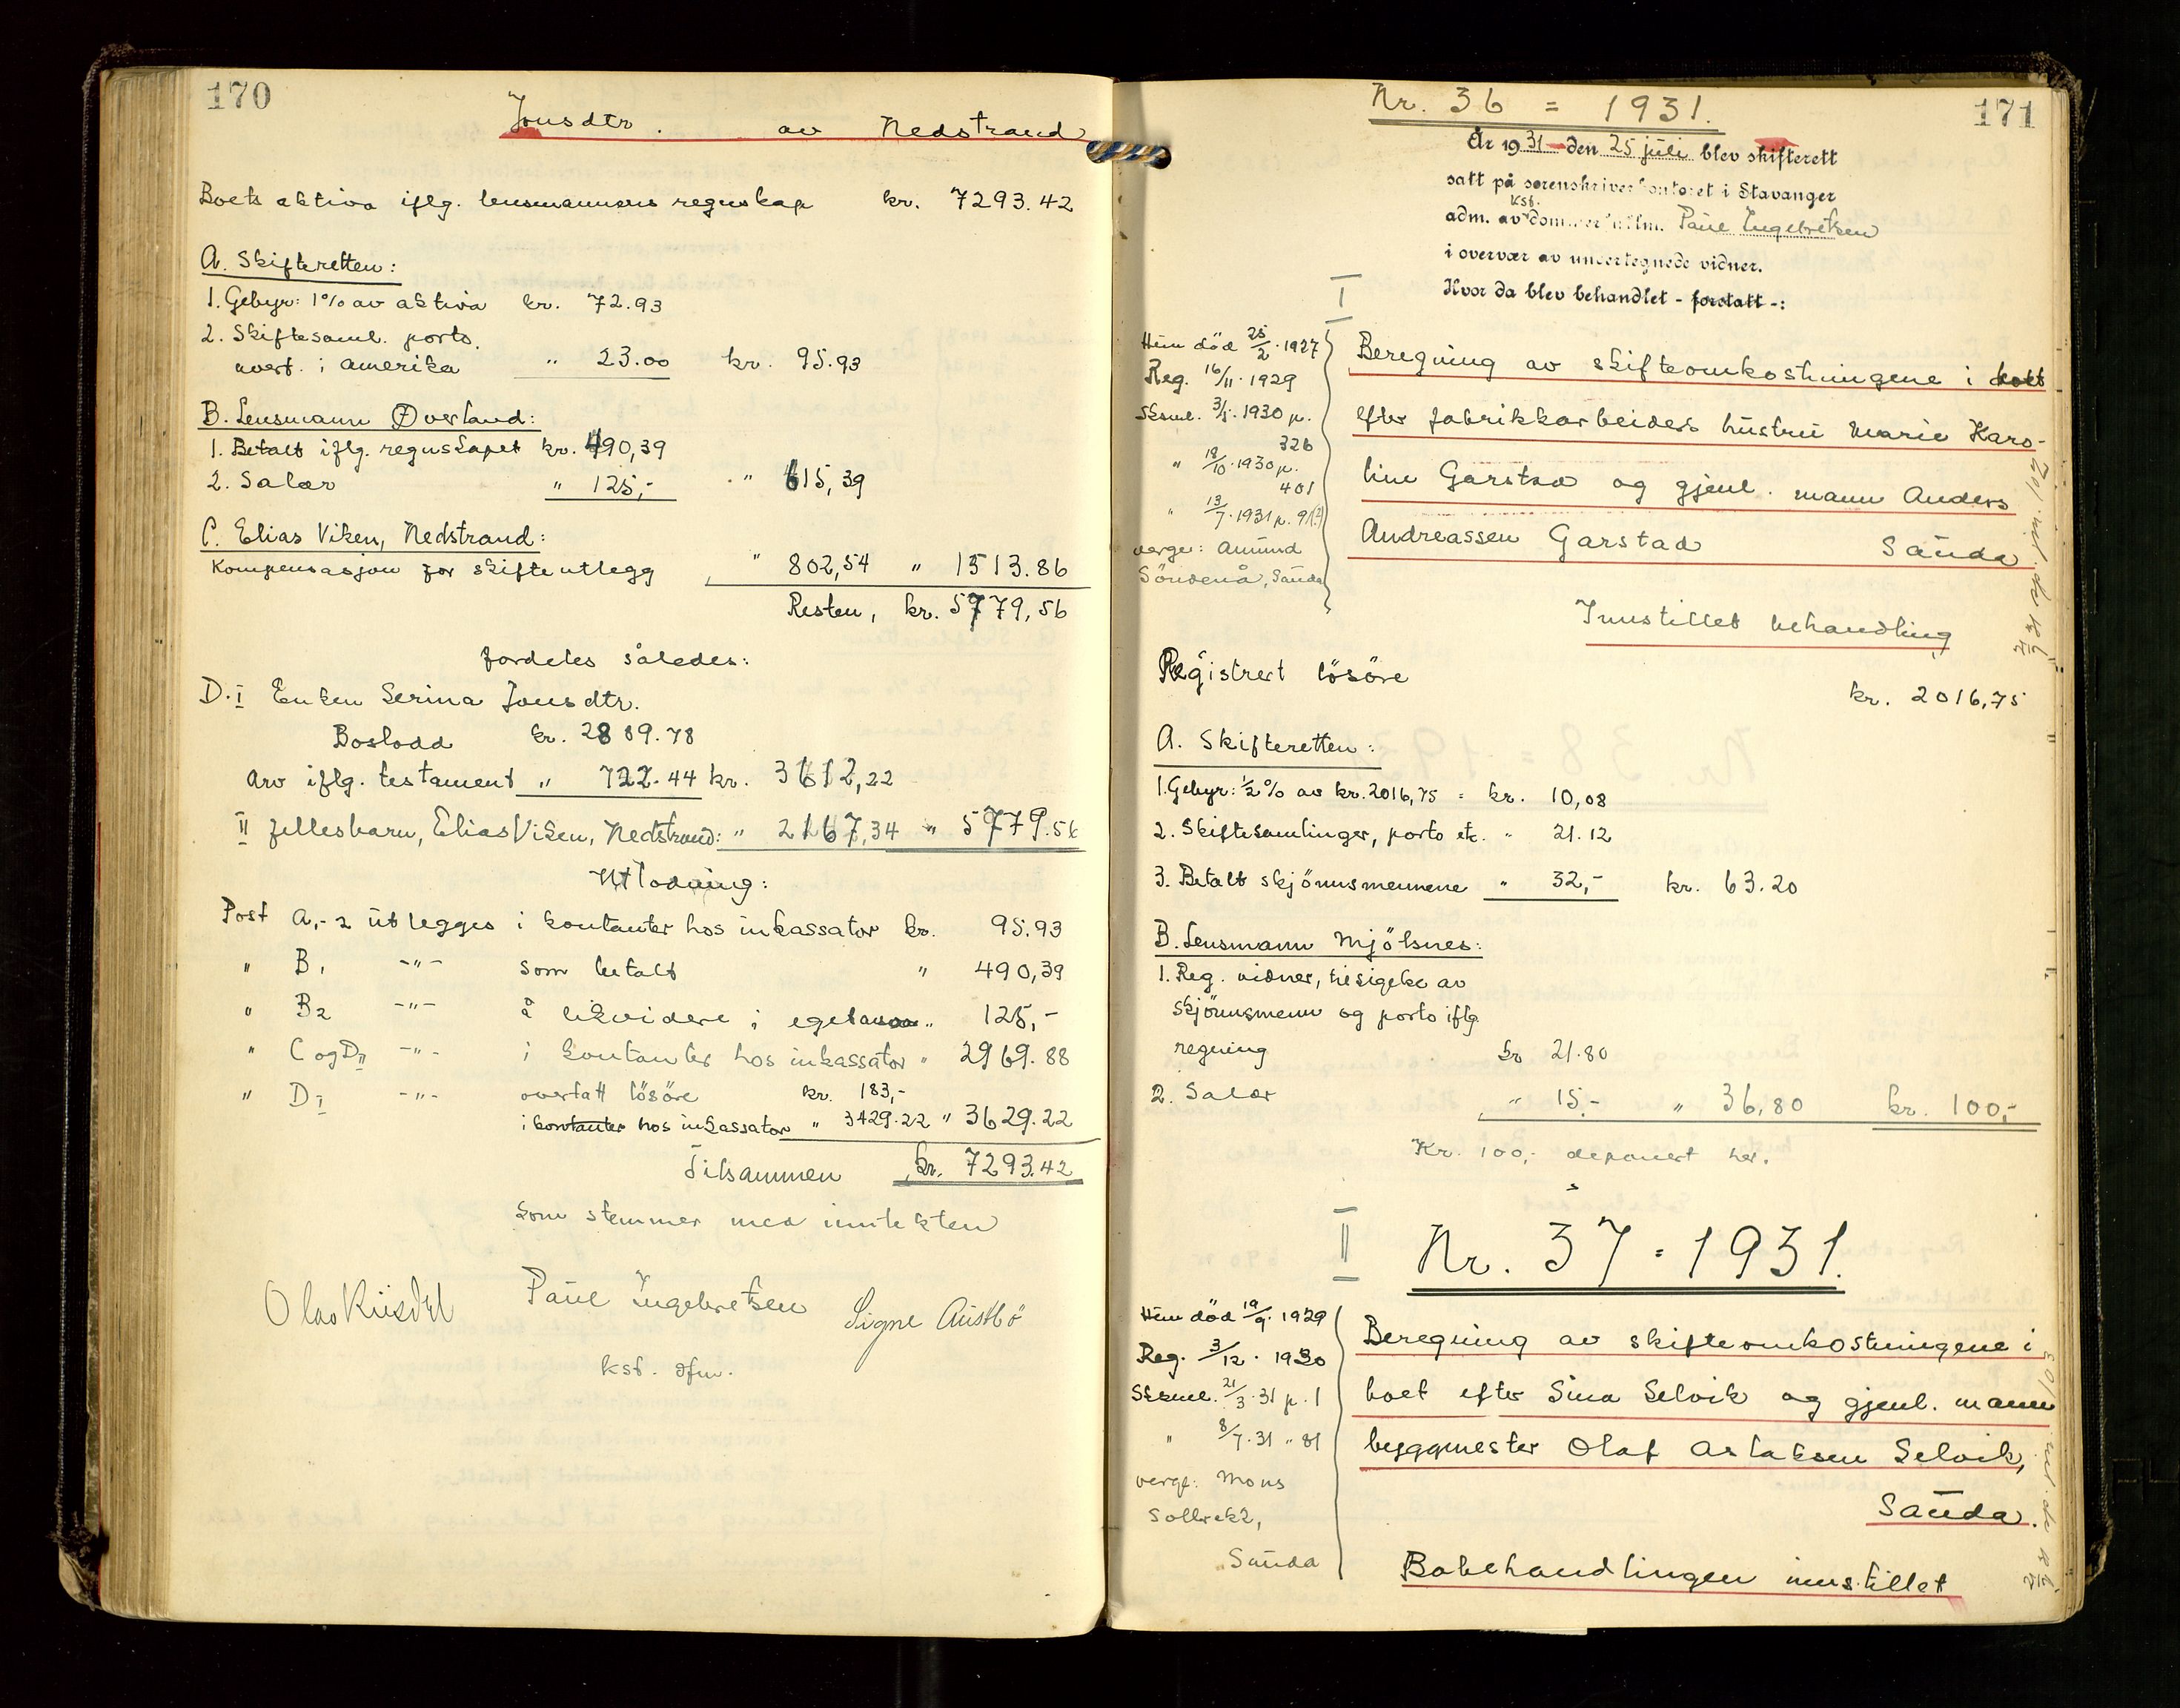 170
Jonsdtr. av Nedstrand
Boets aktiva iflg. lensmannens regnskap kr. 7293.42
A. Skifteretten:
1. Gebyr: 1% av aktiva kr. 72.93
2. Skiftesaml. porto.
avert. i Amerika " 23.00 kr. 95.93
B. Lensmann Øverland:
1. Betalt iflg. regnskapet kr. 490,39
2. Salær " 125,- " 615,39
C. Elias Viken, Nedstrand:
Kompensasjon for skifteutlegg " 802,54 " 1513.86
Resten, kr. 5779,56
fordeles således:
D. I Enken Serina Jonsdtr.
Boslodd kr. 2889.78
Arv iflg. testament " 722.44 kr. 3612,22
II fellesbarn, Elias Viken, Nedstrand: " 2167,34 " 5779.56
Utlodning:
Post A,-2 utlegges i kontanter hos inkassator kr. 95.93
" B1 -"- som betalt " 490,39
" B2 -"- å likvidere i eget " 125,-
" C og DII -"- i kontanter hos inkassator " 2969.88
" DI -"- overtatt lösöre kr. 183,-
i kontanter hos inkassator " 3429.22 " 3629.22
Tilsammen kr. 7293.42
som stemmer med inntekten
Paul Ingebretsen Signe Austbö
kst. dfm.
171
Nr. 36 = 1931.
År 1931 den 25 juli blev skifterett
satt på sorenskriverkontoret i Stavanger
kst.
adm. av dommerfullm. Paul Ingebretsen
i overvær av undertegnede vidner.
Hvor da blev behandlet - forstatt -:
I
Hun död 25/2. 1927
Reg. 16/11. 1929
Sksml. 3/5. 1930 p.
326
" 18/10. 1930 p.
401
" 13/7. 1931 p. 91
verge: Amund
Söndenå, Sauda
Beregning av skifteomkostningene i boet
efter fabrikkarbeiders hustru Marie Karo-
line Garstad og gjenl. mann Anders
Andreassen Garstad Sauda
Innstillet behandling
Registrert lösöre
kr. 2016,75
A. Skifteretten:
1. Gebyr: ½% av kr. 2016,75 = kr. 10,08
2. Skiftesamlinger, porto etc. " 21.12
3. Betalt skjönnsmennene " 32,- kr. 63.20
B. Lensmann Mjölsnes:
1. Reg. vidner, tilsigelse av
skjönnsmenn og porto iflg.
regning kr 21.80
2. Salær " 15,- " 36,80 kr. 100,-
Kr. 100,- deponert her.
II
Nr. 37 = 1931.
Hun död 19/9. 1929
Reg. 3/12. 1930
Sksml. 21/3. 31 p. 1
" 8/7. 31 " 81
verge: Mons
Solbrekk,
Sauda
Beregning av skifteomkostningene i
boet efter Sina Selvik og gjenl. mann
byggmester Olaf Aslaksen Selvik,
Sauda.
Bobehandlingen innstillet